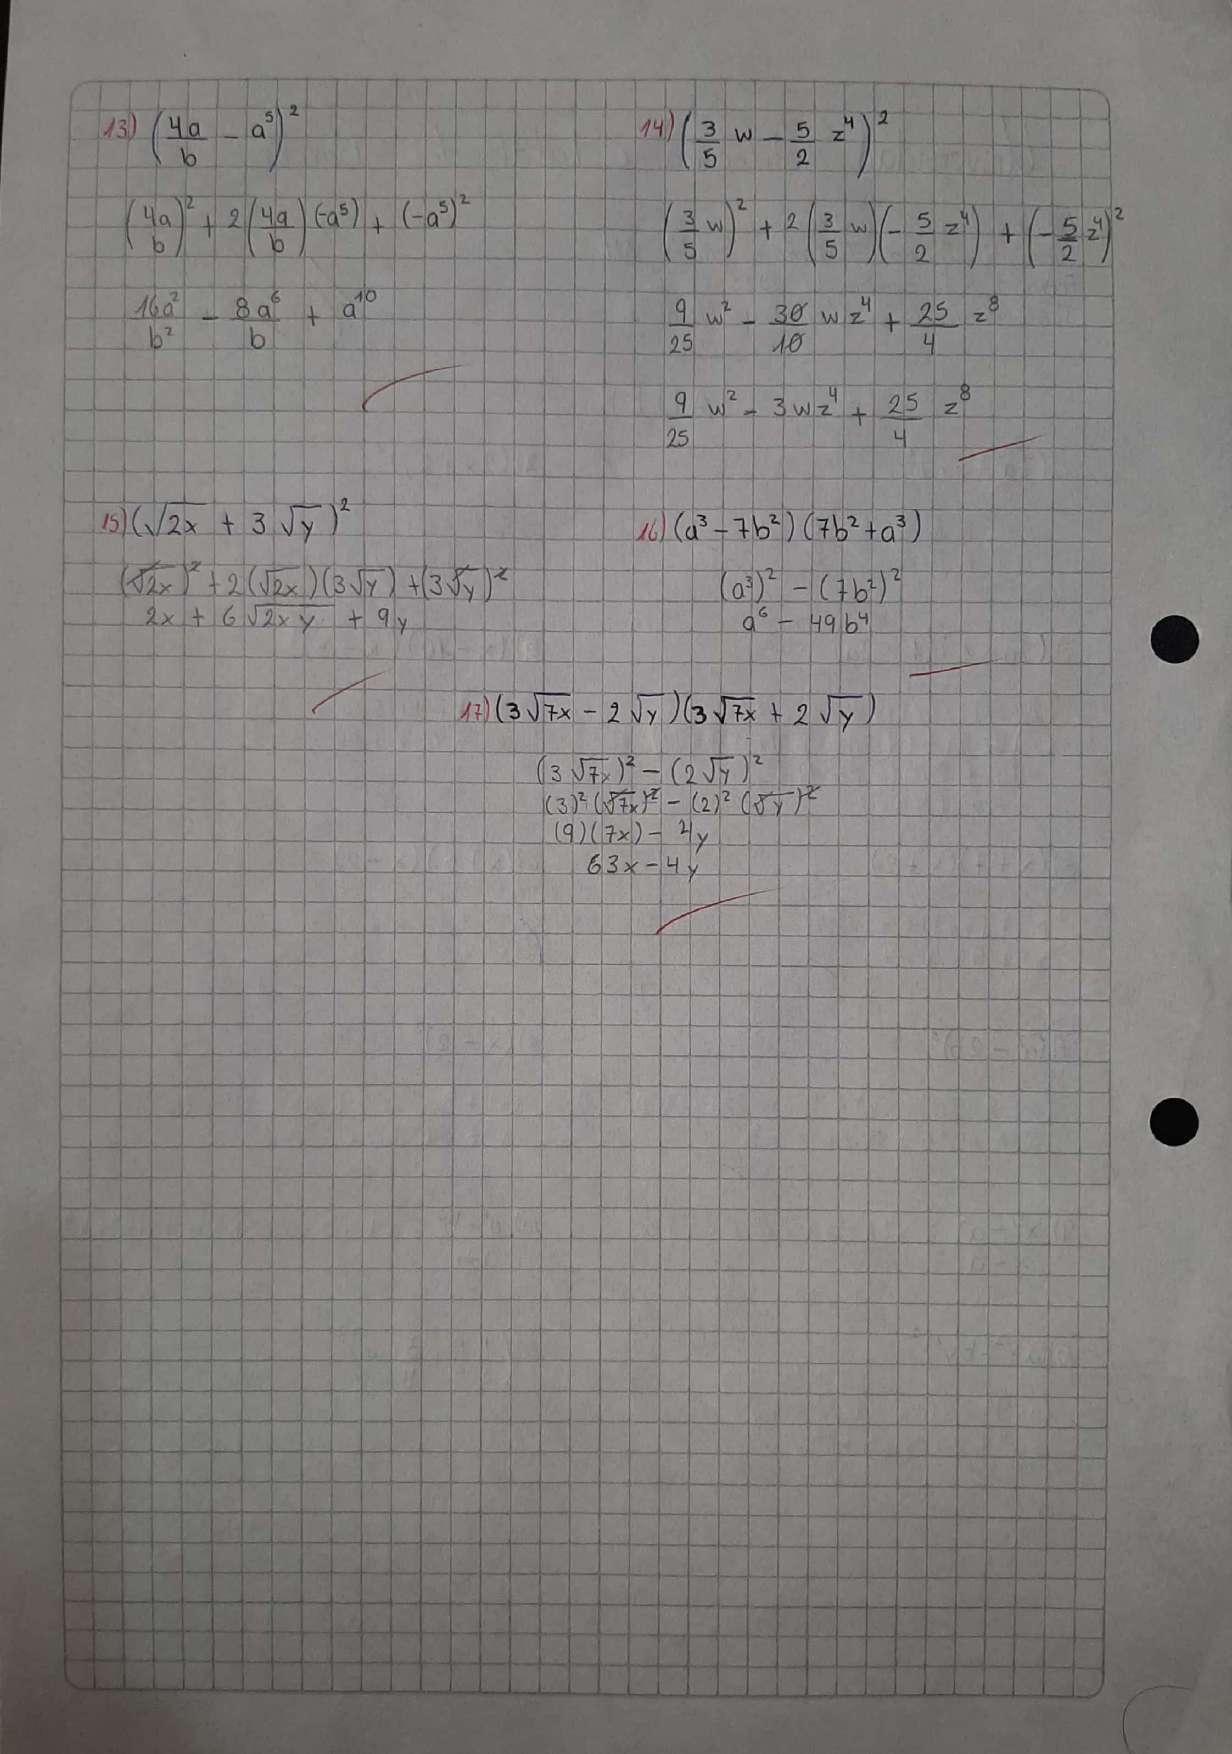 13) (4a/b - a⁵)²
(4a/b)² + 2(4a/b)(-a⁵) + (-a⁵)²
16a²/b² - 8a⁶/b + a¹⁰
14) (3/5 w - 5/2 z⁴)²
(3/5 w)² + 2(3/5 w)(-5/2 z⁴) + (-5/2 z⁴)²
9/25 w² - 30/10 wz⁴ + 25/4 z⁸
9/25 w² - 3wz⁴ + 25/4 z⁸
15) (√2x + 3√y)²
(√2x)² + 2(√2x)(3√y) + (3√y)²
2x + 6√2xy + 9y
16) (a³ - 7b²)(7b² + a³)
(a³)² - (7b²)²
a⁶ - 49b⁴
17) (3√7x - 2√y)(3√7x + 2√y)
(3√7x)² - (2√y)²
(3)²(√7x)² - (2)²(√y)²
(9)(7x) - 4y
63x - 4y